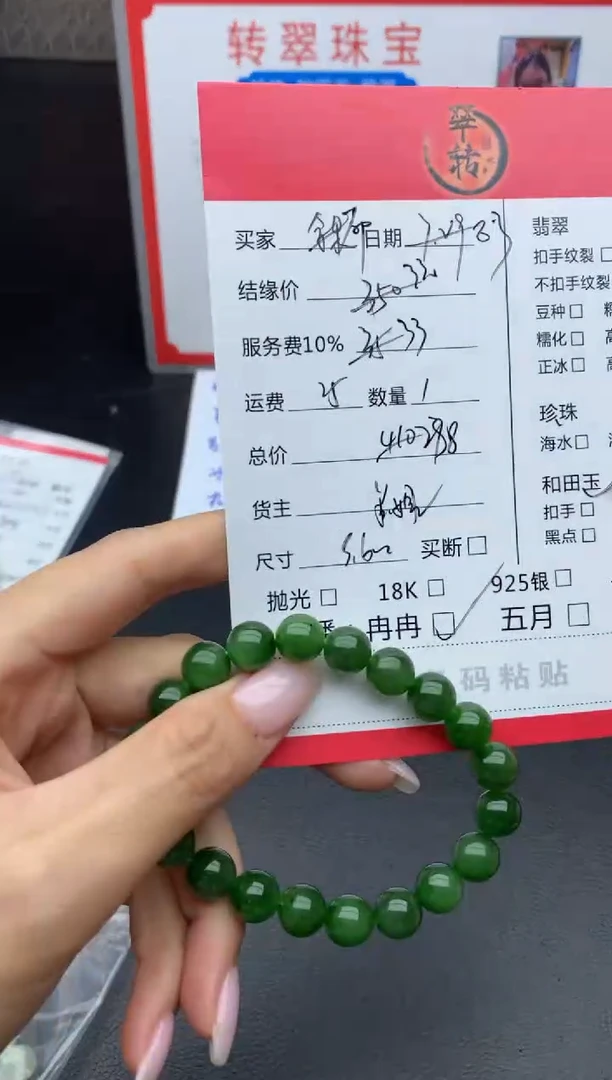 转翠珠宝
翠
转
买家 日期 7.29
结缘价 350 330
服务费10% 35 33
运费 25 数量 1
总价 410 388
货主
尺寸 买断
抛光 18K 925银
冉冉 五月
码粘贴
翡翠
扣手纹裂
不扣手纹裂
豆种
糯化
正冰
珍珠
海水
和田玉
扣手
黑点